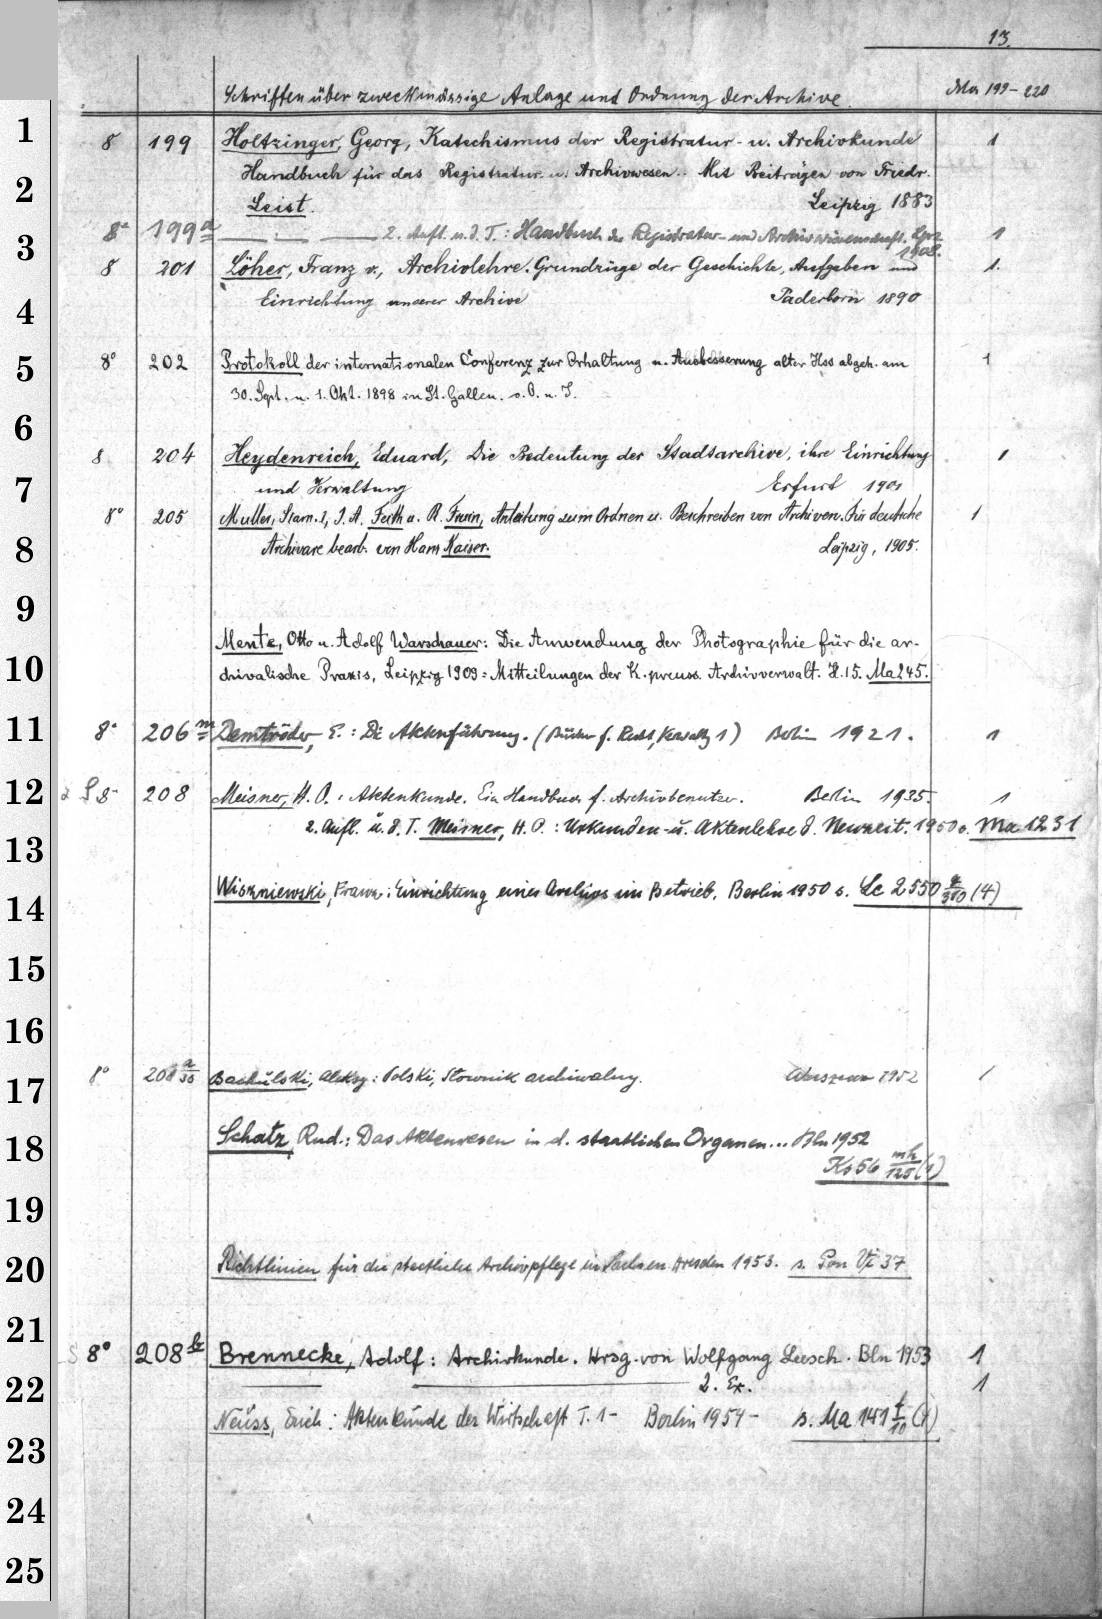 13.
Schriften über zweckmässige Anlage und Ordnung der Archive. Ma 199-220
1
8 199 Holtzinger, Georg, Katechismus der Registratur- u. Archivkunde 1
Handbuch für das Registratur- u. Archivwesen.. Mit Beiträgen von Friedr.
2
Leist. Leipzig 1883
8° 199a 2. Aufl. u. d. T.: Handbuch der Registratur- und Archivwissenschaft. Lpz 1
3
1908.
8 201 Löher, Franz v., Archivlehre. Grundzüge der Geschichte, Aufgaben und 1.
Einrichtung unserer Archive Paderborn 1890
4
8° 202 Protokoll der internationalen Conferenz zur Erhaltung u. Ausbesserung alter Hss abgeh. am 1
5
30. Sept. u. 1. Okt. 1898 in St. Gallen. o. O. u. J.
6
8 204 Heydenreich, Eduard, Die Bedeutung der Stadtarchive, ihre Einrichtung 1
und Verwaltung Erfurt 1901
7
8° 205 Muller, Sam. J., J. A. Feith u. R. Fruin, Anleitung zum Ordnen u. Beschreiben von Archiven. Für deutsche 1
Archivare bearb. von Hans Kaiser. Leipzig, 1905.
8
9
Mentz, Otto u. Adolf Warschauer: Die Anwendung der Photographie für die ar-
10
chivalische Praxis, Leipzig 1909 = Mitteilungen der K. preuss. Archivverwalt. H. 15. Ma 245.
11
8° 206m Demtröder, E.: Die Aktenführung. (Bücher f. Recht, Verwaltg 1) Berlin 1921. 1
12
8° 208 Meisner, H. O.: Aktenkunde. Ein Handbuch f. Archivbenutzer. Berlin 1935. 1
2. Aufl. u. d. T. Meisner, H. O.: Urkunden- u. Aktenlehre d. Neuzeit. 1950 s. Ma 1231
13
14
Wiszniewski, Franz: Einrichtung eines Archivs im Betrieb. Berlin 1950 s. Lc 2550 (4)
15
16
17
8° 208 a/30 Bachulski, Aleksy: Polski, Słownik archiwalny. Warszawa 1952 1
18
Schatz, Rud.: Das Aktenwesen in d. staatlichen Organen... Bln 1952
Ks 56 mh/125 (1)
19
20
Richtlinien für die staatliche Archivpflege in Sachsen. Dresden 1953. s. Pon Vi 37
21
8° 208b Brennecke, Adolf: Archivkunde. Hrsg. von Wolfgang Leesch. Bln 1953 1
22
2. Ex. 1
Neuss, Erich: Aktenkunde der Wirtschaft T. 1- Berlin 1954- s. Ma 141 t/10 (1)
23
24
25